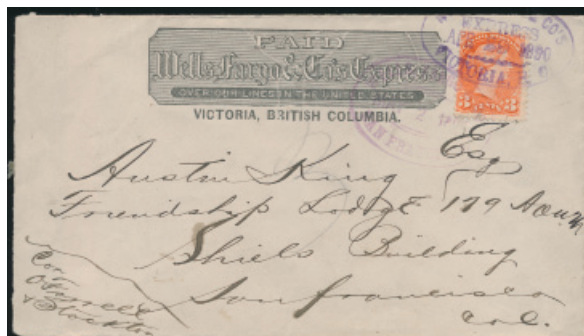 PAID
Wells, Fargo & Co's Express
OVER OUR LINES IN THE UNITED STATES
VICTORIA, BRITISH COLUMBIA.
CO'S
EXPRESS
1890
VICTORIA, B. C.
3 CENTS 3
Esq
Austin King
Friendship Lodge 179
Shiels Building
San Francisco
Cal.
Cor
O'Farrell
& Stockton